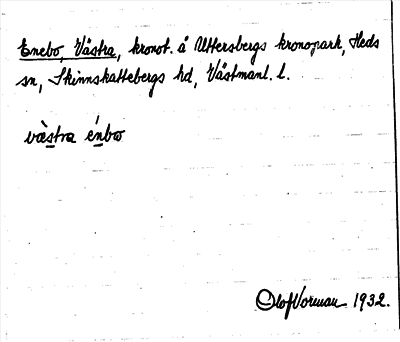 Enebo, Västra, kronot. å Uttersbergs kronopark, Heds
sn, Skinnskattebergs hd, Västmanl. l.
vàstra énbo
Olof Vorman 1932.